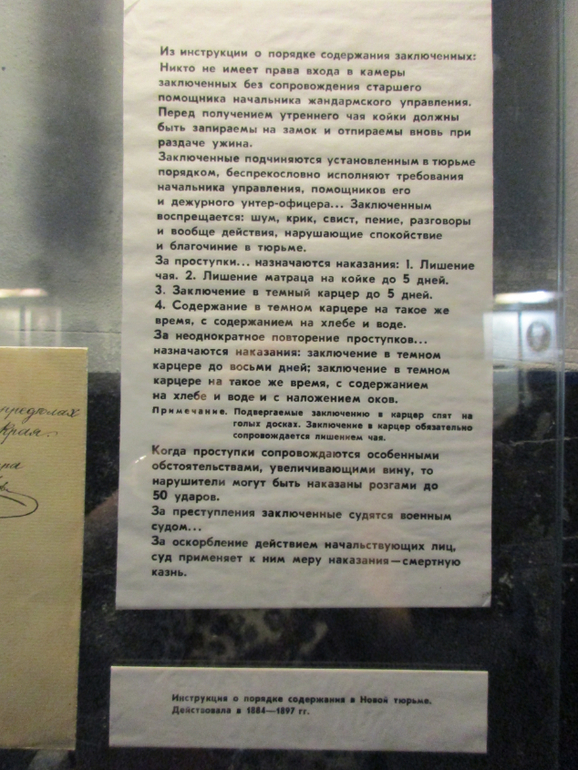 Из инструкции о порядке содержания заключенных:
Никто не имеет права входа в камеры
заключенных без сопровождения старшего
помощника начальника жандармского управления.
Перед получением утреннего чая койки должны
быть запираемы на замок и отпираемы вновь при
раздаче ужина.
Заключенные подчиняются установленным в тюрьме
порядком, беспрекословно исполняют требования
начальника управления, помощников его
и дежурного унтер-офицера... Заключенным
воспрещается: шум, крик, свист, пение, разговоры
и вообще действия, нарушающие спокойствие
и благочиние в тюрьме.
За проступки... назначаются наказания: 1. Лишение
чая. 2. Лишение матраца на койке до 5 дней.
3. Заключение в темный карцер до 5 дней.
4. Содержание в темном карцере на такое же
время, с содержанием на хлебе и воде.
За неоднократное повторение проступков...
назначаются наказания: заключение в темном
карцере до восьми дней; заключение в темном
карцере на такое же время, с содержанием
на хлебе и воде и с наложением оков.
Примечание. Подвергаемые заключению в карцер спят на
голых досках. Заключение в карцер обязательно
сопровождается лишением чая.
Когда проступки сопровождаются особенными
обстоятельствами, увеличивающими вину, то
нарушители могут быть наказаны розгами до
50 ударов.
За преступления заключенные судятся военным
судом...
За оскорбление действием начальствующих лиц,
суд применяет к ним меру наказания—смертную
казнь.
предѣлах
края
Инструкция о порядке содержания в Новой тюрьме.
Действовала в 1884—1897 гг.